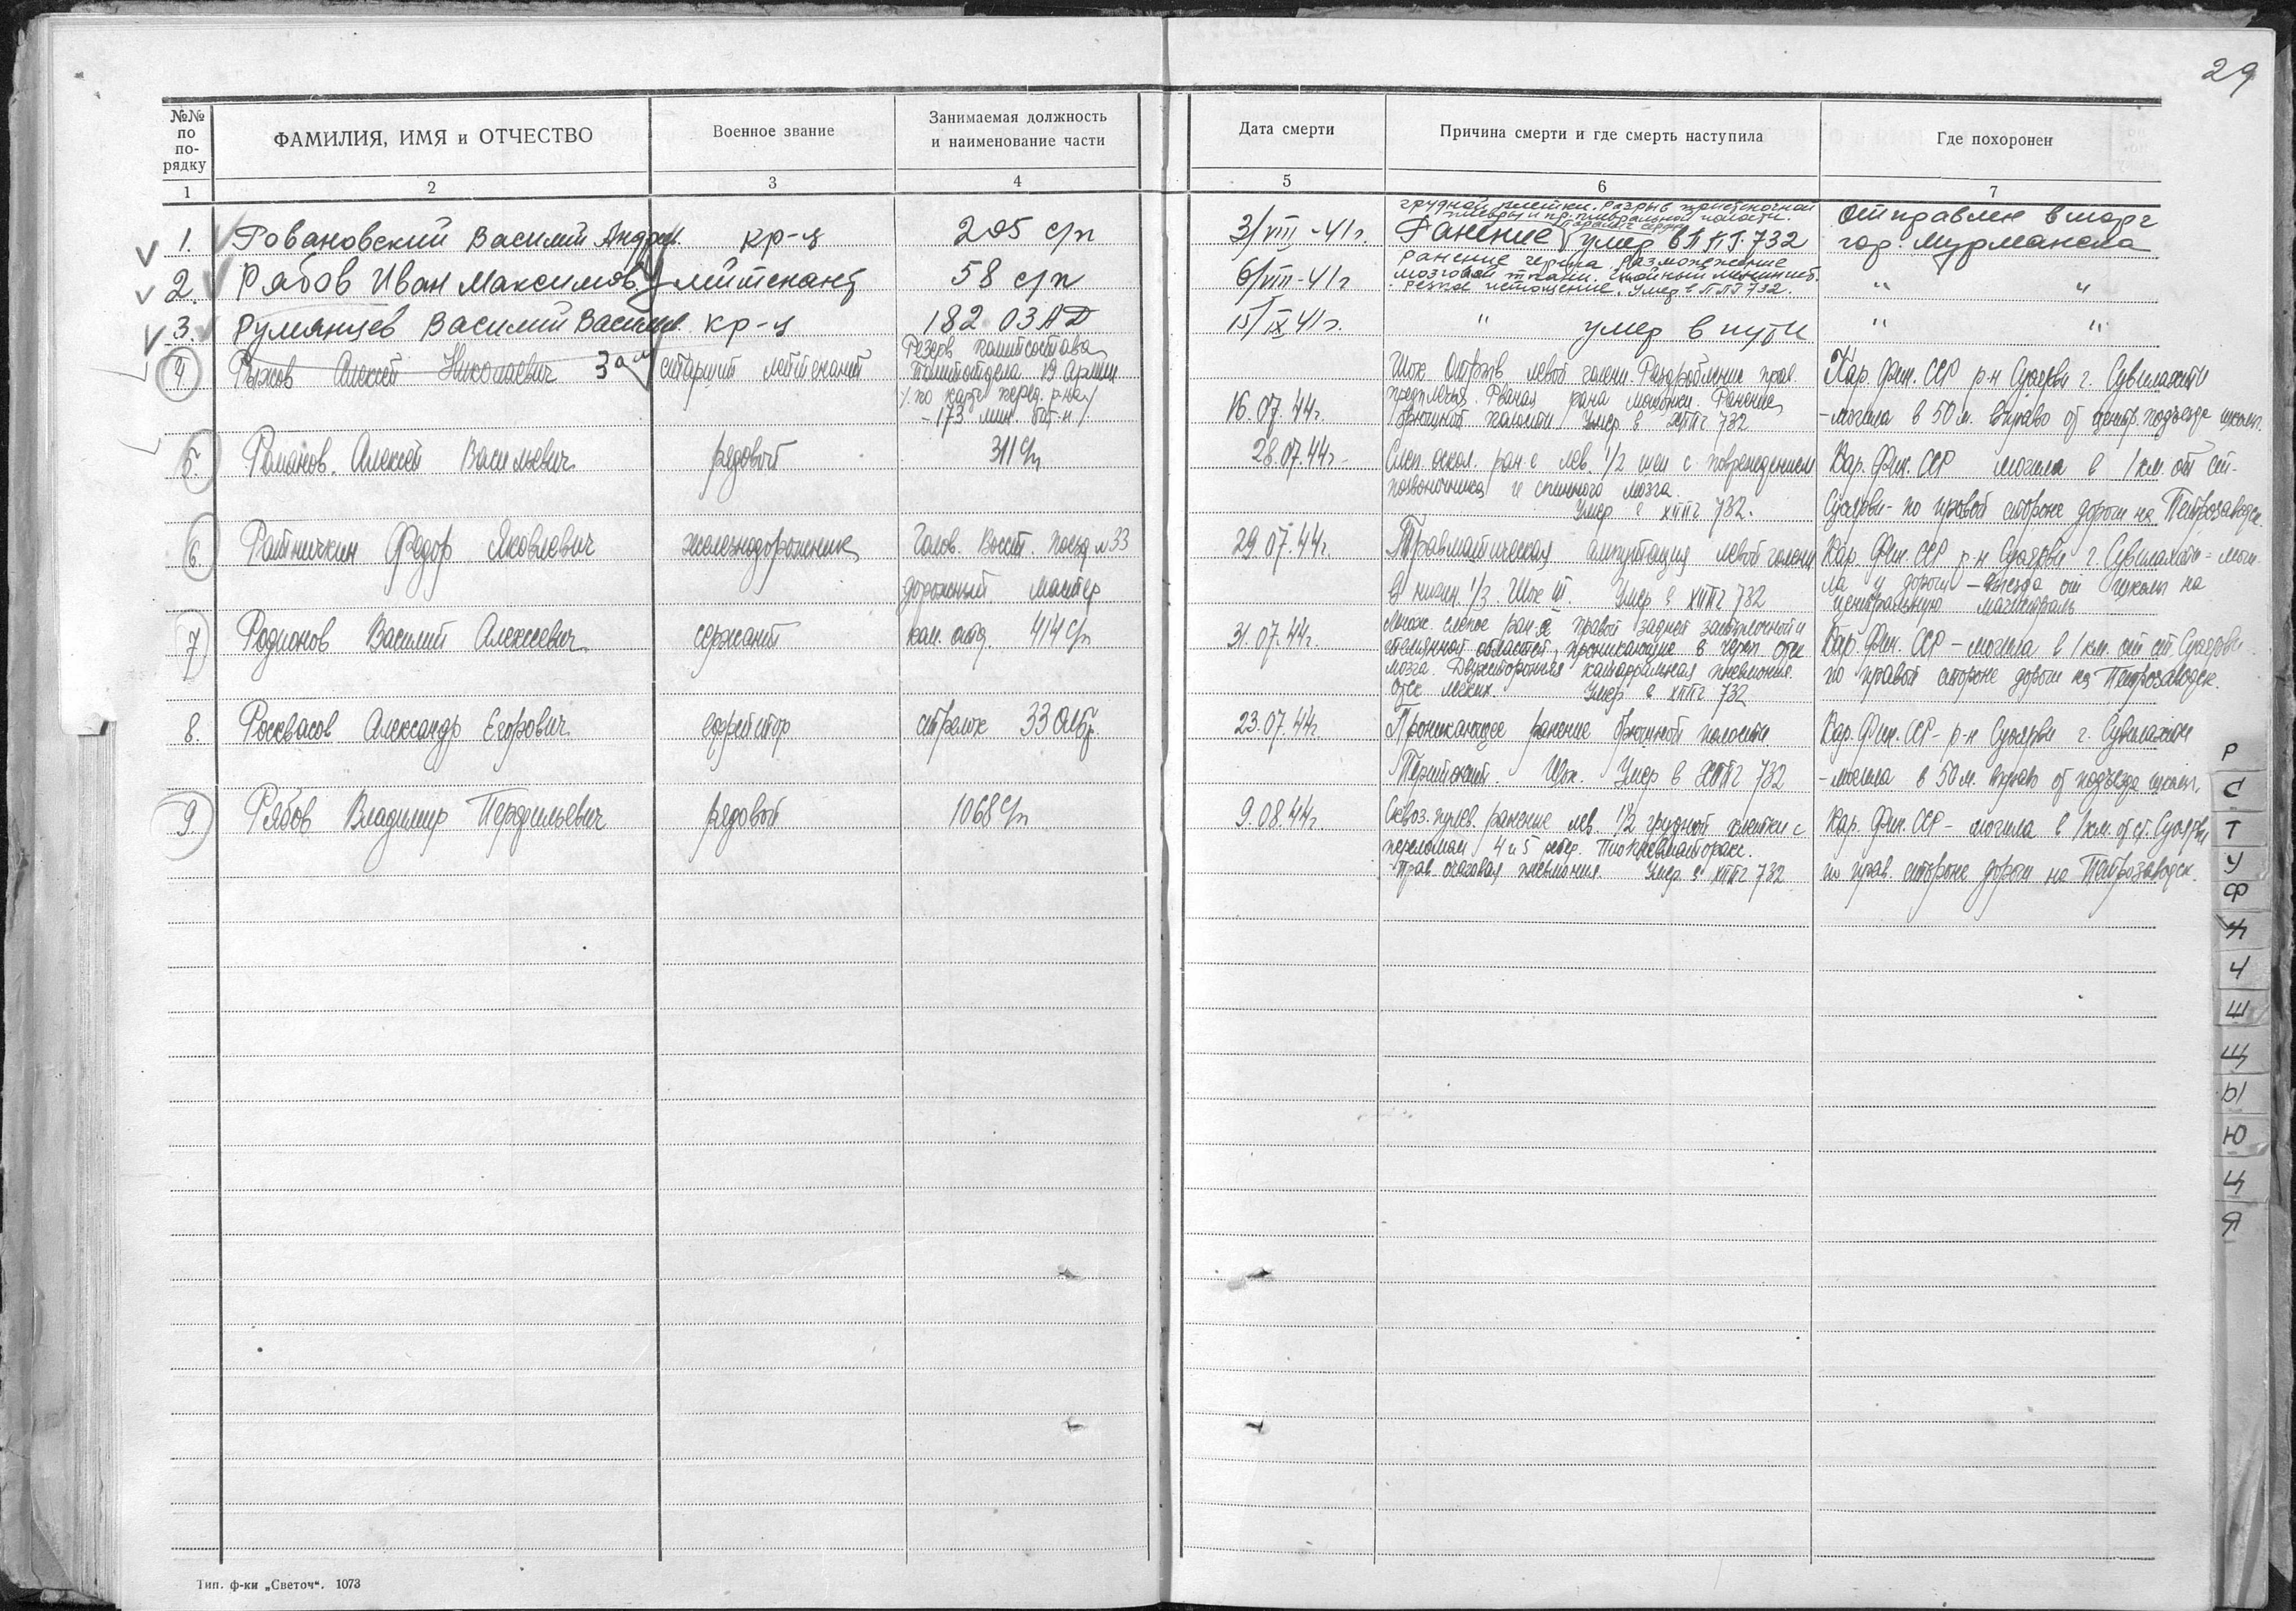 29
№№ по по-рядку
ФАМИЛИЯ, ИМЯ и ОТЧЕСТВО
Военное звание
Занимаемая должность
и наименование части
Дата смерти
Причина смерти и где смерть наступила
Где похоронен
1 2 3 4 5 6 7
грудной клетки. Разрыв пристеночной
плевры и пр. плевральной полости.
1. Ровановский Василий Андреев. кр-ц 205 с/п 3/VIII-41г. Ранение умер в ППГ 732 Отправлен в морг
гор. Мурманска
Ранение черепа размозжение
мозговой ткани. Гнойный менингит.
2. Рябов Иван Максимов. лейтенант 58 с/п 6/VIII-41г резкое истощение. Умер в ППГ 732. " "
3. Румянцев Василий Васильев. кр-ц 182 ОЗАД 15/IX 41г. " умер в пути " "
4 Рыжов Алексей Николаевич Зам старший лейтенант
Резерв политсостава
Политотдела Армии
/по карт. перед. р-на/
- 173 мин. бат-н/
16.07.44г.
Шок. Отрыв левой голени. Раздробление прав.
предплечья. Рваная рана мошонки. Ранение
брюшной полости Умер в ХППГ 732
Кар. Фин. ССР р-н Суоярви г. Сувилахти
- могила в 50 м. вправо от центр. подъезда школы.
5. Романов Алексей Васильевич рядовой 311 с/п 28.07.44г.
Слеп. оскол. ран-е лев. 1/2 шеи с повреждением
позвоночника и спинного мозга.
Умер в ХППГ 732.
Кар. Фин. ССР могила в 1 км. от ст.
Суоярви - по правой стороне дороги на Петрозаводск.
6. Ратничкин Федор Яковлевич железнодорожник
Голов. Восст. поезд №33
дорожный мастер
29.07.44г.
Травматическая ампутация левой голени
в нижн. 1/3. Шок III. Умер в ХППГ 732
Кар. Фин. ССР р-н Суоярви г. Сувилахти - моги-
ла у дороги - выезда от школы на
центральную магистраль
7 Родионов Василий Алексеевич сержант ком. отд. 414 с/п 31.07.44г.
Множ. слепое ран-е правой задней заушной и
области, проникающие в череп Отек
мозга. Двухсторонняя катарральная пневмония.
Отек легких. Умер в ХППГ 732
Кар. Фин. ССР - могила в 1 км. от ст. Суоярви
по правой стороне дороги на Петрозаводск.
8. Росквасов Александр Егорович ефрейтор стрелок 33 23.07.44г.
Проникающее ранение брюшной полости.
Перитонит. Шок. Умер в ХППГ 732
Кар. Фин. ССР - р-н Суоярви г. Сувилахти
- могила в 50 м. вправо от подъезда школы.
9. Рябов Владимир Перфильевич рядовой 1068 с/п 9.08.44г.
Сквоз. пулев. ранение лев. 1/2 грудной клетки с
переломам 4 и 5 ребер. Пиопневматоракс.
Прав. очаговая пневмония. Умер в ХППГ 732
Кар. Фин. ССР - могила в 1 км. от ст. Суоярви
по прав. стороне дороги на Петрозаводск.
Р
С
Т
У
Ф
Ч
Ш
Щ
Ы
Ю
Я
Тип. ф-ки „Светоч". 1073